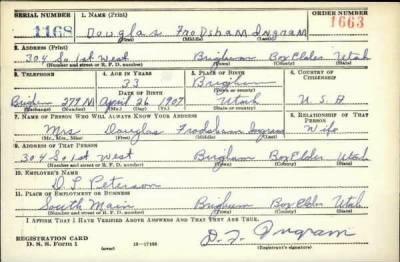 SERIAL NUMBER 1. NAME (Print) ORDER NUMBER
1168 Douglas Frodsham Ingram 1663
(First) (Middle) (Last)
2. ADDRESS (Print)
304 So 1st West Brigham Box Elder Utah
(Number and street or R. F. D. number) (Town) (County) (State)
3. TELEPHONE 4. AGE IN YEARS 5. PLACE OF BIRTH 6. COUNTRY OF CITIZENSHIP
33 Brigham
DATE OF BIRTH (Town or county)
Brigham 279M April 26 1907 Utah U.S.A
(Exchange) (Number) (Mo.) (Day) (Yr.) (State or country)
7. NAME OF PERSON WHO WILL ALWAYS KNOW YOUR ADDRESS 8. RELATIONSHIP OF THAT PERSON
Mrs Douglas Frodsham Ingram Wife
(Mr., Mrs., Miss) (First) (Middle) (Last)
9. ADDRESS OF THAT PERSON
304 So 1st West Brigham Box Elder Utah
(Number and street or R. F. D. number) (Town) (County) (State)
10. EMPLOYER'S NAME
Peterson
11. PLACE OF EMPLOYMENT OR BUSINESS
South Main Brigham Box Elder Utah
(Number and street or R. F. D. number) (Town) (County) (State)
I AFFIRM THAT I HAVE VERIFIED ABOVE ANSWERS AND THAT THEY ARE TRUE.
REGISTRATION CARD
D. S. S. Form 1 (over) 16-17105 D. F. Ingram
(Registrant's signature)